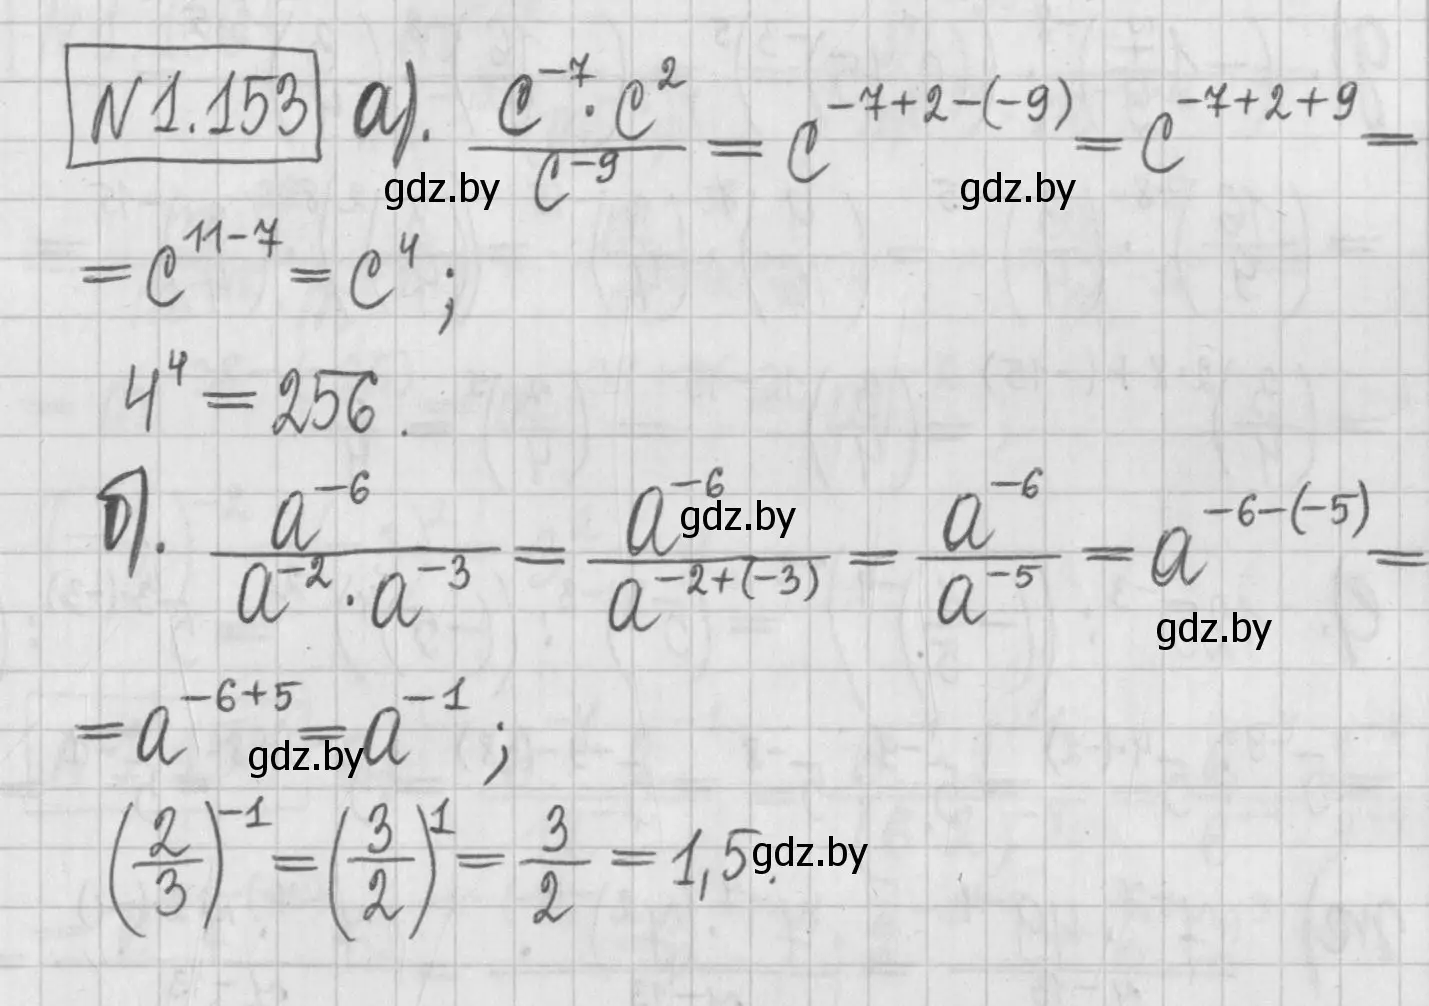 N 1.153 а). (c^{-7} · c^2)/(c^{-9}) = c^{-7+2-(-9)} = c^{-7+2+9} =
gdz.by gdz.by
= c^{11-7} = c^4 ;
4^4 = 256 .
б). (a^{-6})/(a^{-2} · a^{-3}) = (a^{-6})/(a^{-2+(-3)}) = (a^{-6})/(a^{-5}) = a^{-6-(-5)} =
gdz.by
gdz.by
= a^{-6+5} = a^{-1} ;
gdz.by
(2/3)^{-1} = (3/2)^1 = 3/2 = 1,5 .
gdz.by